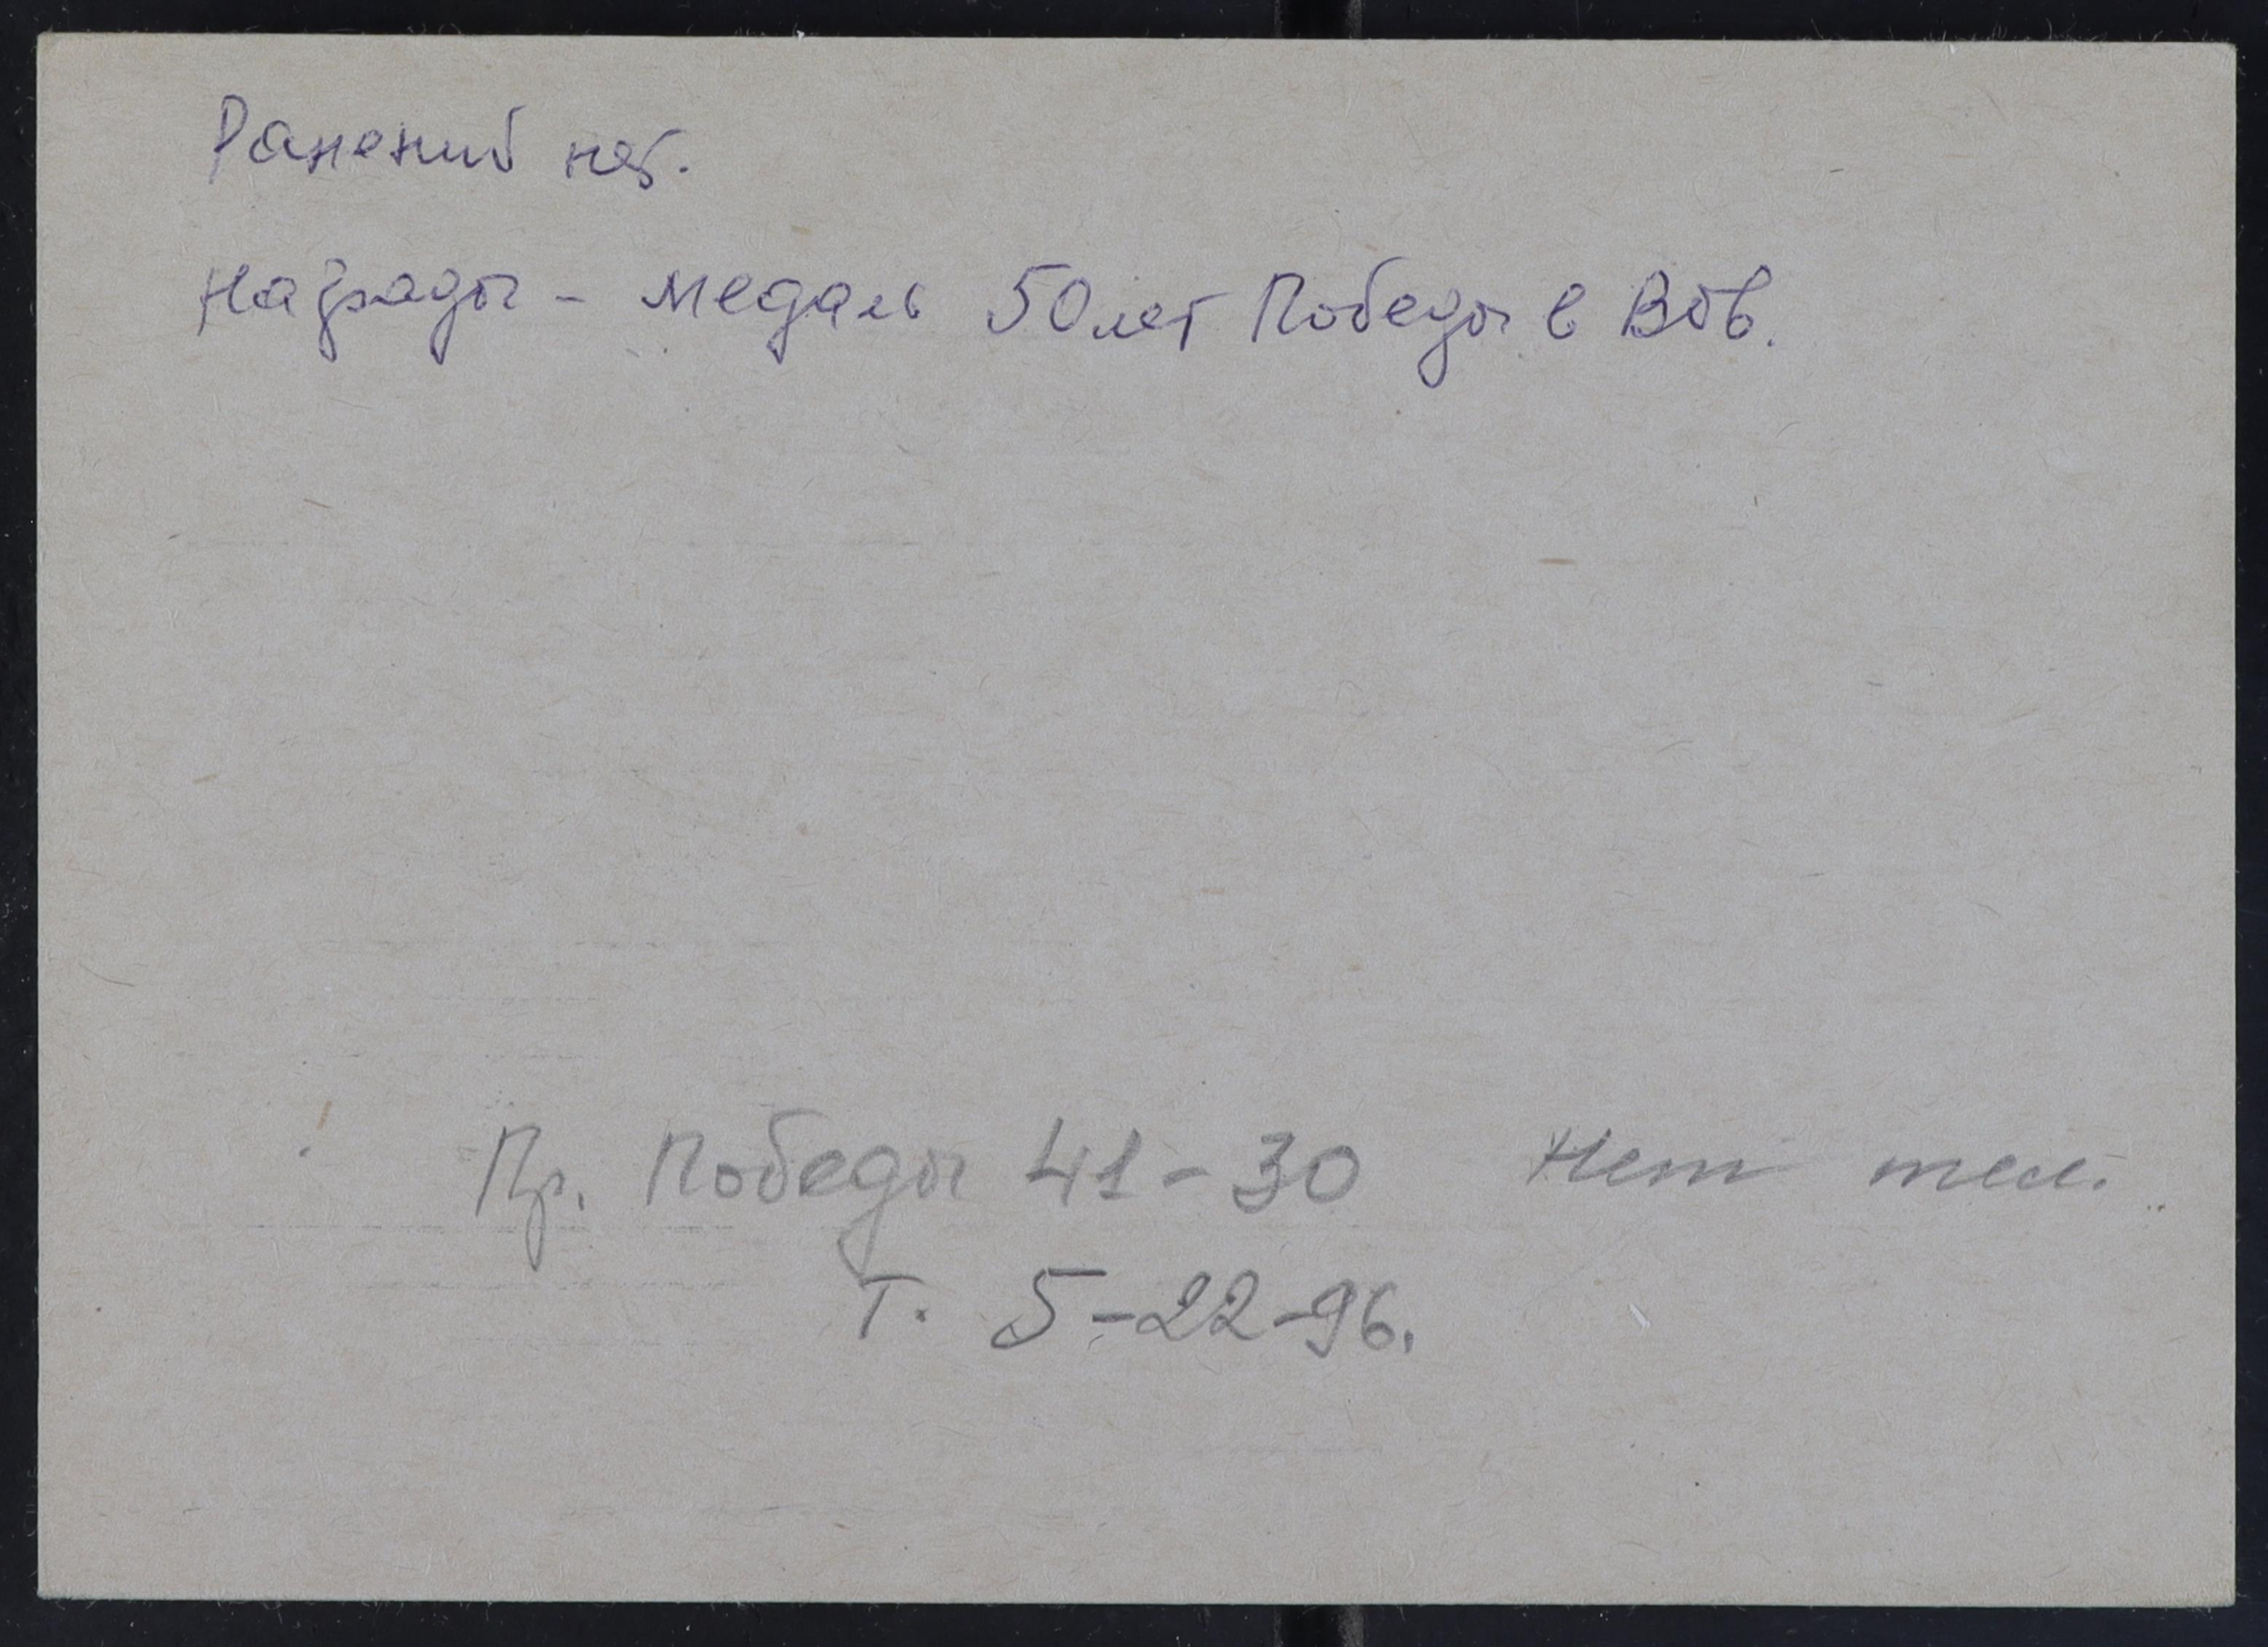 Ранений нет.
Награды - медаль 50 лет Победы в ВОВ.
Пр. Победы 41-30 Нет тел.
Т. 5-22-96.